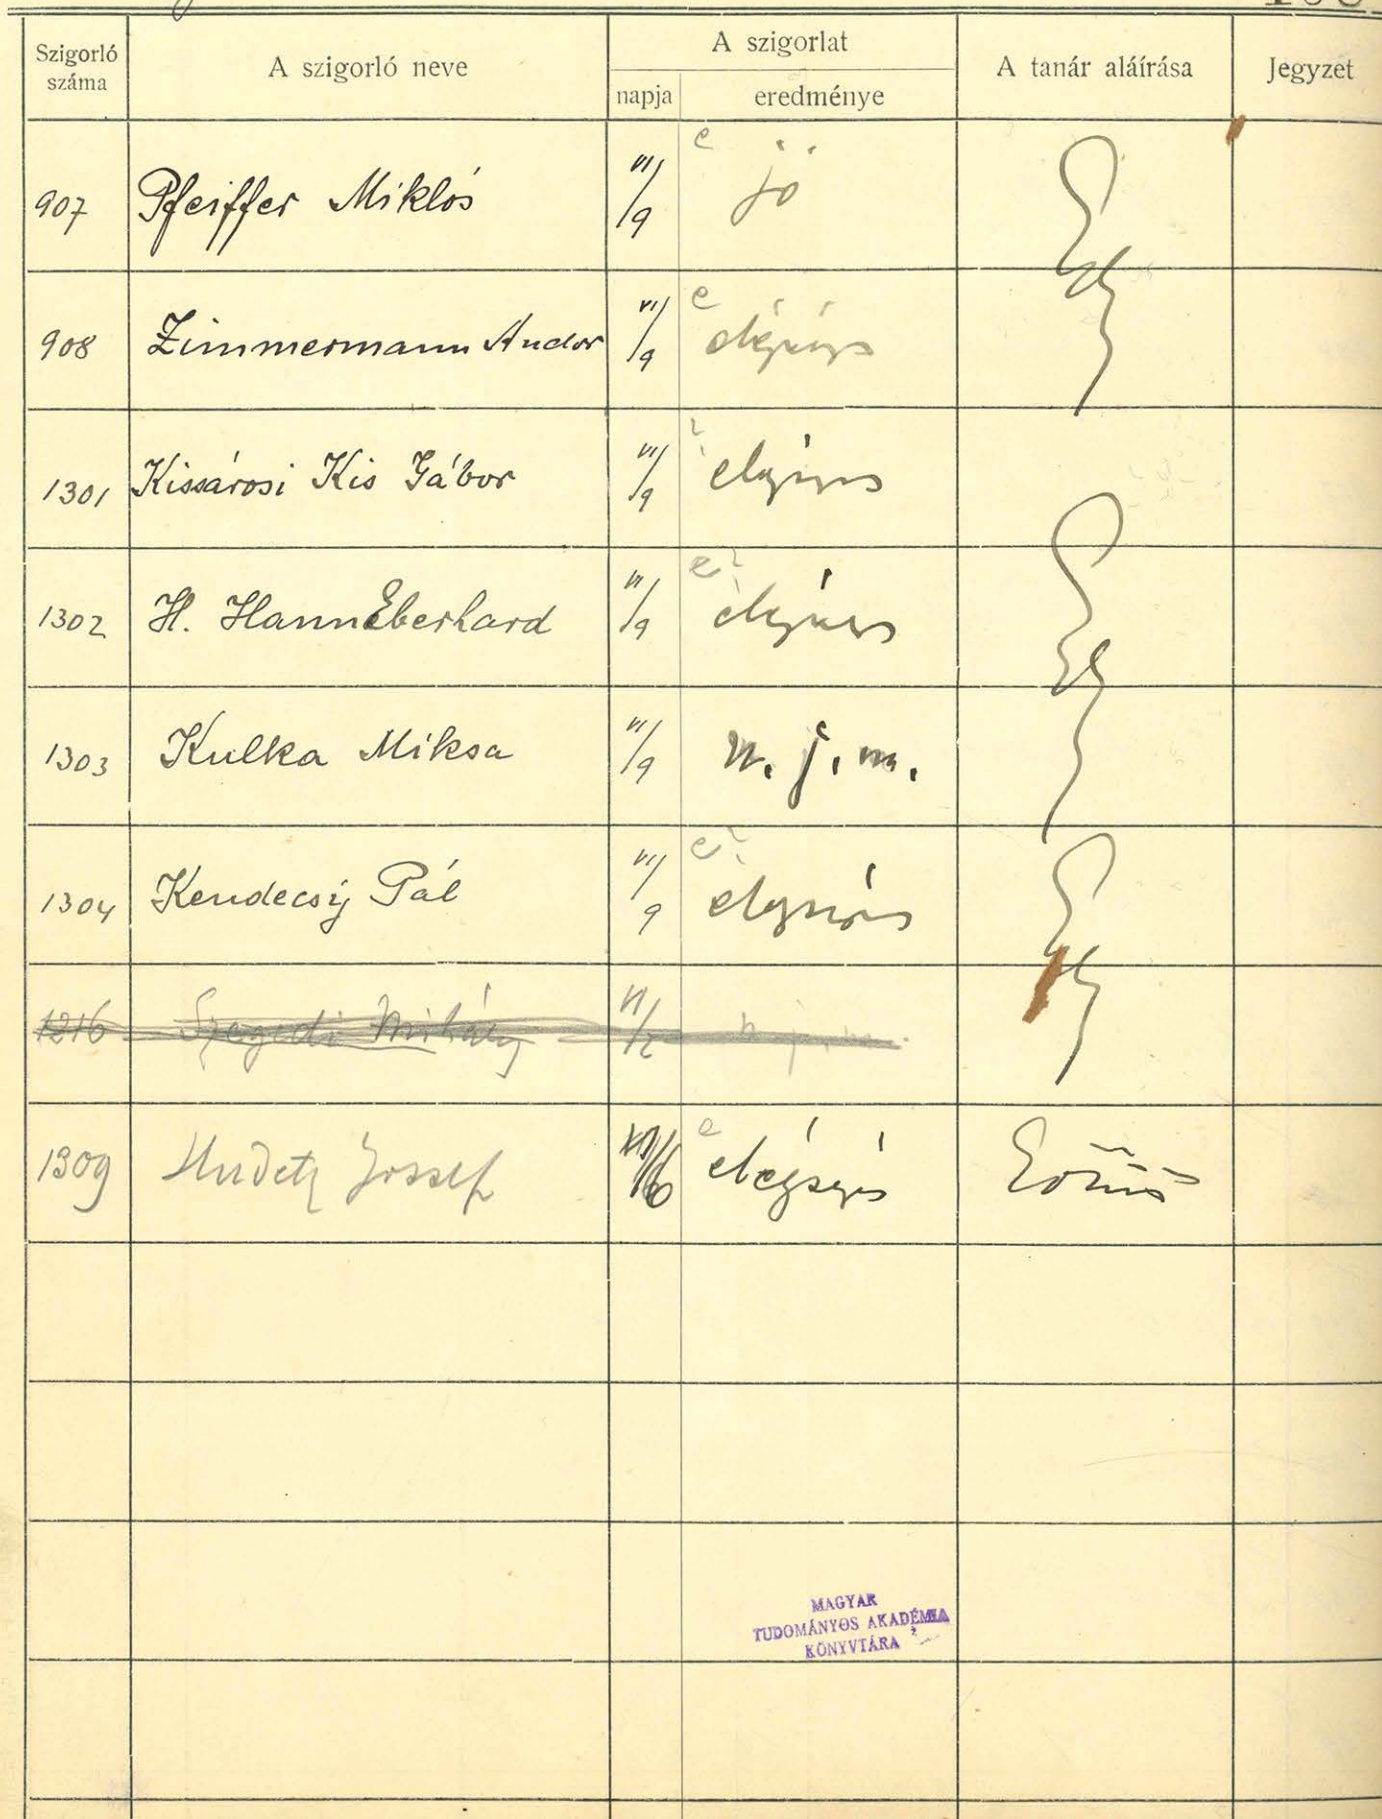 Szigorló száma
A szigorló neve
A szigorlat
napja
eredménye
A tanár aláírása
Jegyzet
907 Pfeiffer Miklós VI/9 e jó
908 Zimmermann Andor VI/9 e elégséges
1301 Kissárosi Kis Gábor VI/9 elégséges
1302 H. Hann Eberhard VI/9 e? elégséges
1303 Kulka Miksa VI/9 n. j. m.
1304 Kendecsÿ Pál VI/9 e? elégséges
1216 Szegedi Mihály VI/2 n. j. m.
1309 Hudetz József VI/6 e elégséges Eötvös
MAGYAR
TUDOMÁNYOS AKADÉMIA
KÖNYVTÁRA